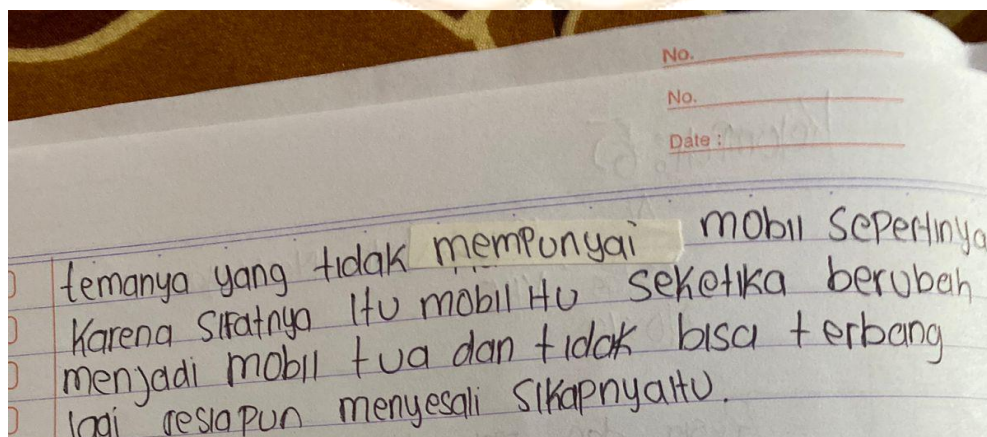 No.
No.
Date :
temanya yang tidak mempunyai mobil sepertinya
Karena sifatnya itu mobil itu seketika berubah
menjadi mobil tua dan tidak bisa terbang
lagi resiapun menyesali sikapnyaitu.